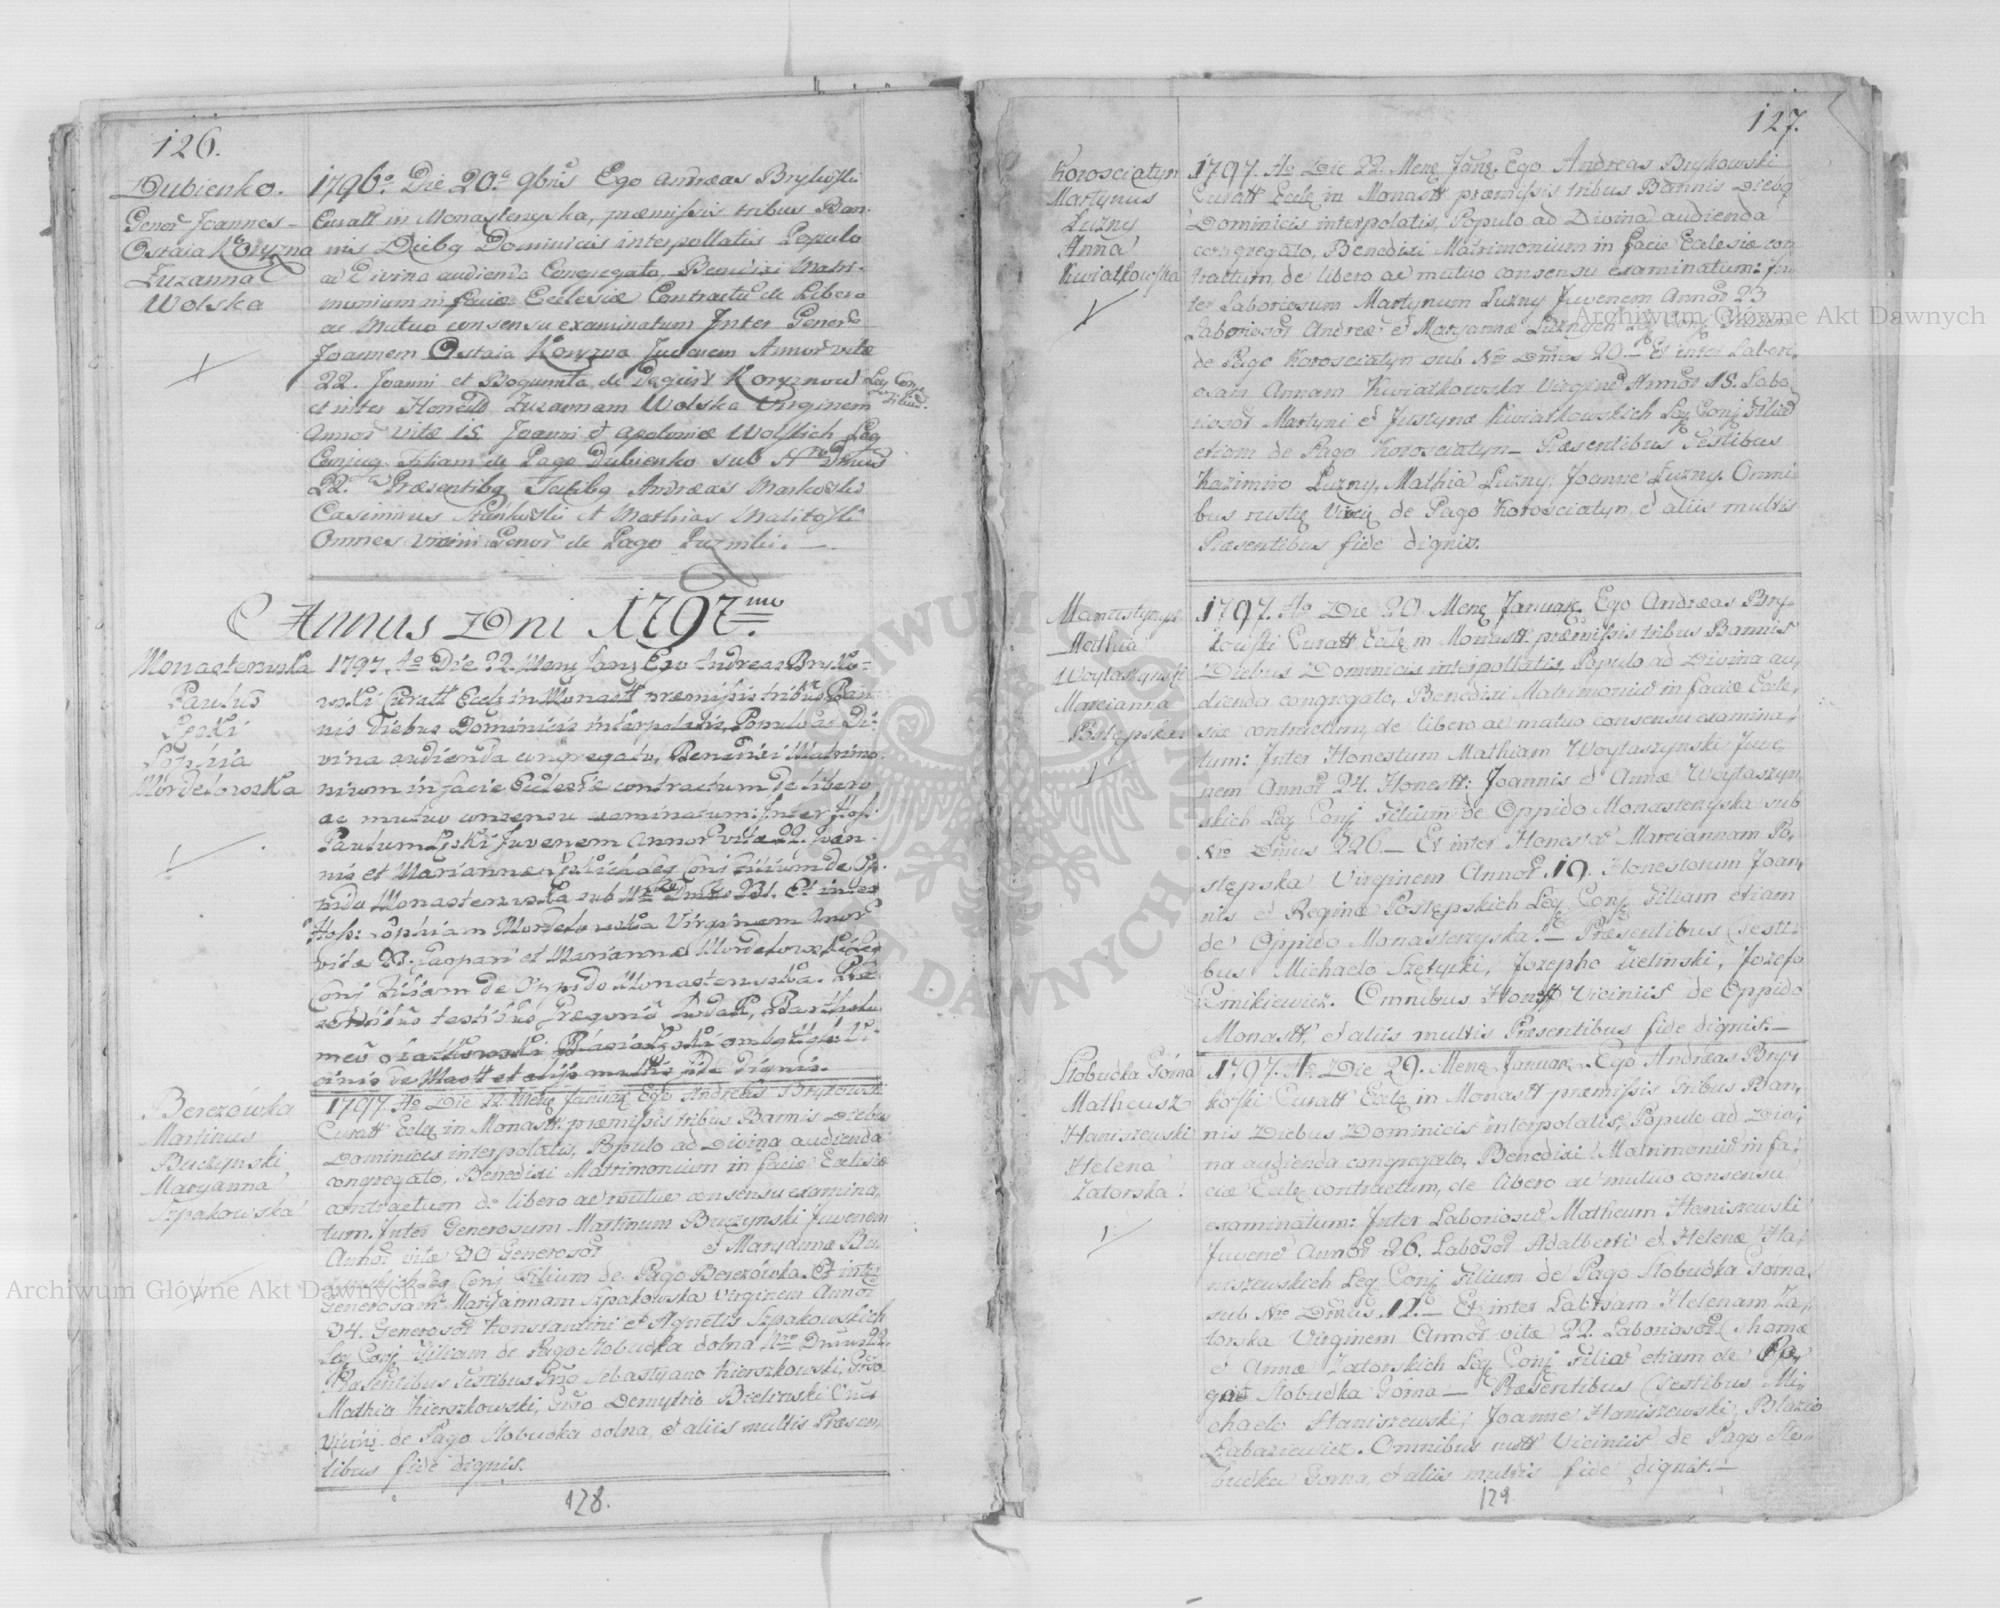 126.
Dubienko.
Genor Joannes
Ostaia Koryzna
Zuzanna
Wolska
1796o Die 20a 9bris Ego Andreas Brykowski
Curatt in Monasterzyska, præmissis tribus Ban-
nis Diebq Dominicis interpollatis Populo
ad Divina audienda Congregato, Benedixi Matri-
monium in facie Ecclesiæ Contractū de Libero
ac Mutuo consensu examinatum Inter Generos
Joannem Ostaia Koryzna Juvenem Annor vitæ
22. Joanni et Bogumila de Koryznow Leg Conj
Filiū.
et inter Honestā Zuzannam Wolska Virginem
Annor vitæ 15 Joanni et Apoloniæ Wolskich Leg
Conjug Filiam de Pago Dubienko sub Nro Dmus
22. Præsentibq Testibq Andreas Markowski
Casimirus Stankoski et Mathias Malitoski
Omnes vicini Genor de Pago
Annus Dni 1797mus
Monasterziska
Paulus
Lyski
Sophia
Mordelowska
1797. Ao Die 22. Menq Janq Ego Andreas Bryko-
wski Curatt Eccle in Monastt præmissis tribus Ban-
nis Diebus Dominicis interpolatis, Populo ad Di-
vina audienda congregato, Benedixi Matrimo-
nium in facie Ecclesiæ contractum de libero
ac mutuo consensu examinatum: Inter Hos:
Paulum Lyski Juvenem Annor vitæ 22. Joan-
nis et Mariannæ Lyskich Leg Conj Filium de Op-
pido Monasterziska sub Nro Dmus 231. Et inter
Hos: Sophiam Mordelowska Virginem Annor
vitæ 23. Gaspari et Mariannæ Mordelowski Leg
Conj Filiam de Oppido Monasterzyska. Præ-
sentibus testibus Gregorio Bartholo-
meo omnibus Vi-
cinis de Mastt et alijs multis fide Dignis.
Berezówka
Martinus
Buczynski
Maryanna
Szpakowska
1797. Ao Die 22. Menq Januar Ego Andreas Brykowski
Curatt Eccle in Monastt præmissis tribus Bannis Diebus
Dominicis interpolatis, Populo ad Divina audienda
congregato, Benedixi Matrimonium in facie Ecclesiæ
contractum de libero ac mutuo consensu examina,
tum. Inter Generosum Martinum Buczynski Juvenem
Annor vitæ 30 Generosor et Maryannæ Bu-
czynskich Leg Conj Filium de Pago Berezówka. Et inter
Generosam Maryannam Szpakowska Virginem Annor
34. Generosor Konstantini et Agnetis Szpakowskich
Leg Conj Filiam de Pago Slobudka dolna Nro Dmus 22.
Præsentibus Testibus Gnro Sebastyano Kierszkowski, Gnro
Mathia Kierszkowski, Gnro Demytrio Bielinski
Vicini de Pago Slobudka dolna, et aliis multis Præsen-
tibus fide dignis.
128.
127.
Korosciatyn
Martynus
Luzny
Anna
Kwiatkowska
1797. Ao Die 22. Menq Janq. Ego Andreas Brykowski
Curatt Eccle in Monastt præmissis tribus Bannis Diebq
Dominicis interpolatis, Populo ad Divina audienda
congregato, Benedixi Matrimonium in facie Ecclesiæ con
tractum, de libero ac mutuo consensu examinatum: In
ter Laboriosum Martynum Luzny Juvenem Annor 23
Laboriosor Andreæ et Maryannæ Luznych Leg Conj Filium
de Pago Korosciatyn sub Nro Dmus 20.— Et inter Labori-
osam Annam Kwiatkowska Virginē Annor 18. Labo-
riosor Martyni et Justynæ Kwiatkowskich Leg Conj Filiā
etiam de Pago Korosciatyn— Præsentibus Testibus
Kazimiro Luzny, Mathia Luzny, Joanne Luzny. Omni
bus rustq Vicq de Pago Korosciatyn et aliis multis
Præsentibus fide dignis.
Manasterzysk
Mathia
Woytaszynski
Marcianna
Postępska
1797. Ao Die 20 Menq Januarq. Ego Andreas Bry-
kowski Curatt Eccle in Monastt. præmissis tribus Bannis
Diebus Dominicis interpollatis, Populo ad Divina au,
dienda congregato, Benedixi Matrimoniū in facie Eccle,
siæ contractum, de libero ac mutuo consensu examina,
tum: Inter Honestum Mathiam Woytaszynski Juve,
nem Annor 24. Honestt: Joannis et Annæ Woytaszyn,
skich Leg Conj Filium de Oppido Monasterzyska sub
Nro Dmus 226.— Et inter Honestā Marciannam Po,
stępska Virginem Annor 19. Honestorum Joan,
nis et Reginæ Postępskich Leg Conj Filiam etiam
de Oppido Monasterzyska.— Præsentibus Testi-
bus Michaelo Szętycki, Jozepho Zielinski, Jozefo
Omnibus Honestt Viciniis de Oppido
Monastt, et aliis multis Præsentibus fide dignis.—
Slobudka Górna
Matheusz
Haniszewski
Helena
Zatorska.
1797. Ao Die 29. Menq Januar. Ego Andreas Bry,
koski Curatt Eccle in Monastt præmissis tribus Ban,
nis Diebus Dominicis interpolatis, Populo ad Divi,
na audienda congregato, Benedixi Matrimoniū in fa,
ciæ Eccle contractum, de libero ac mutuo consensu
examinatum: Inter Laboriosū Matheum Haniszewski
Juvenē Annor 26. Labosor Adalberti et Helenæ Ha,
niszewskich Leg Conj Filium de Pago Slobudka Gorna
sub Nro Dmus. 12.— Et inter Labosam Helenam Za,
torska Virginem Annor vitæ 22. Laboriosor Thomæ
et Annæ Zatorskich Leg Conj Filiā etiam de
Slobudka Gorna— Præsentibus Testibus Mi,
chaelo Haniszewski, Joanne Haniszewski, Blazio
Labaziewicz. Omnibus rustt Viciniis de Pago Slo-
budka Gorna, et aliis multis fide dignis.—
129
Archiwum Główne Akt Dawnych
Archiwum Główne Akt Dawnych
ARCHIWUM GŁÓWNE AKT DAWNYCH